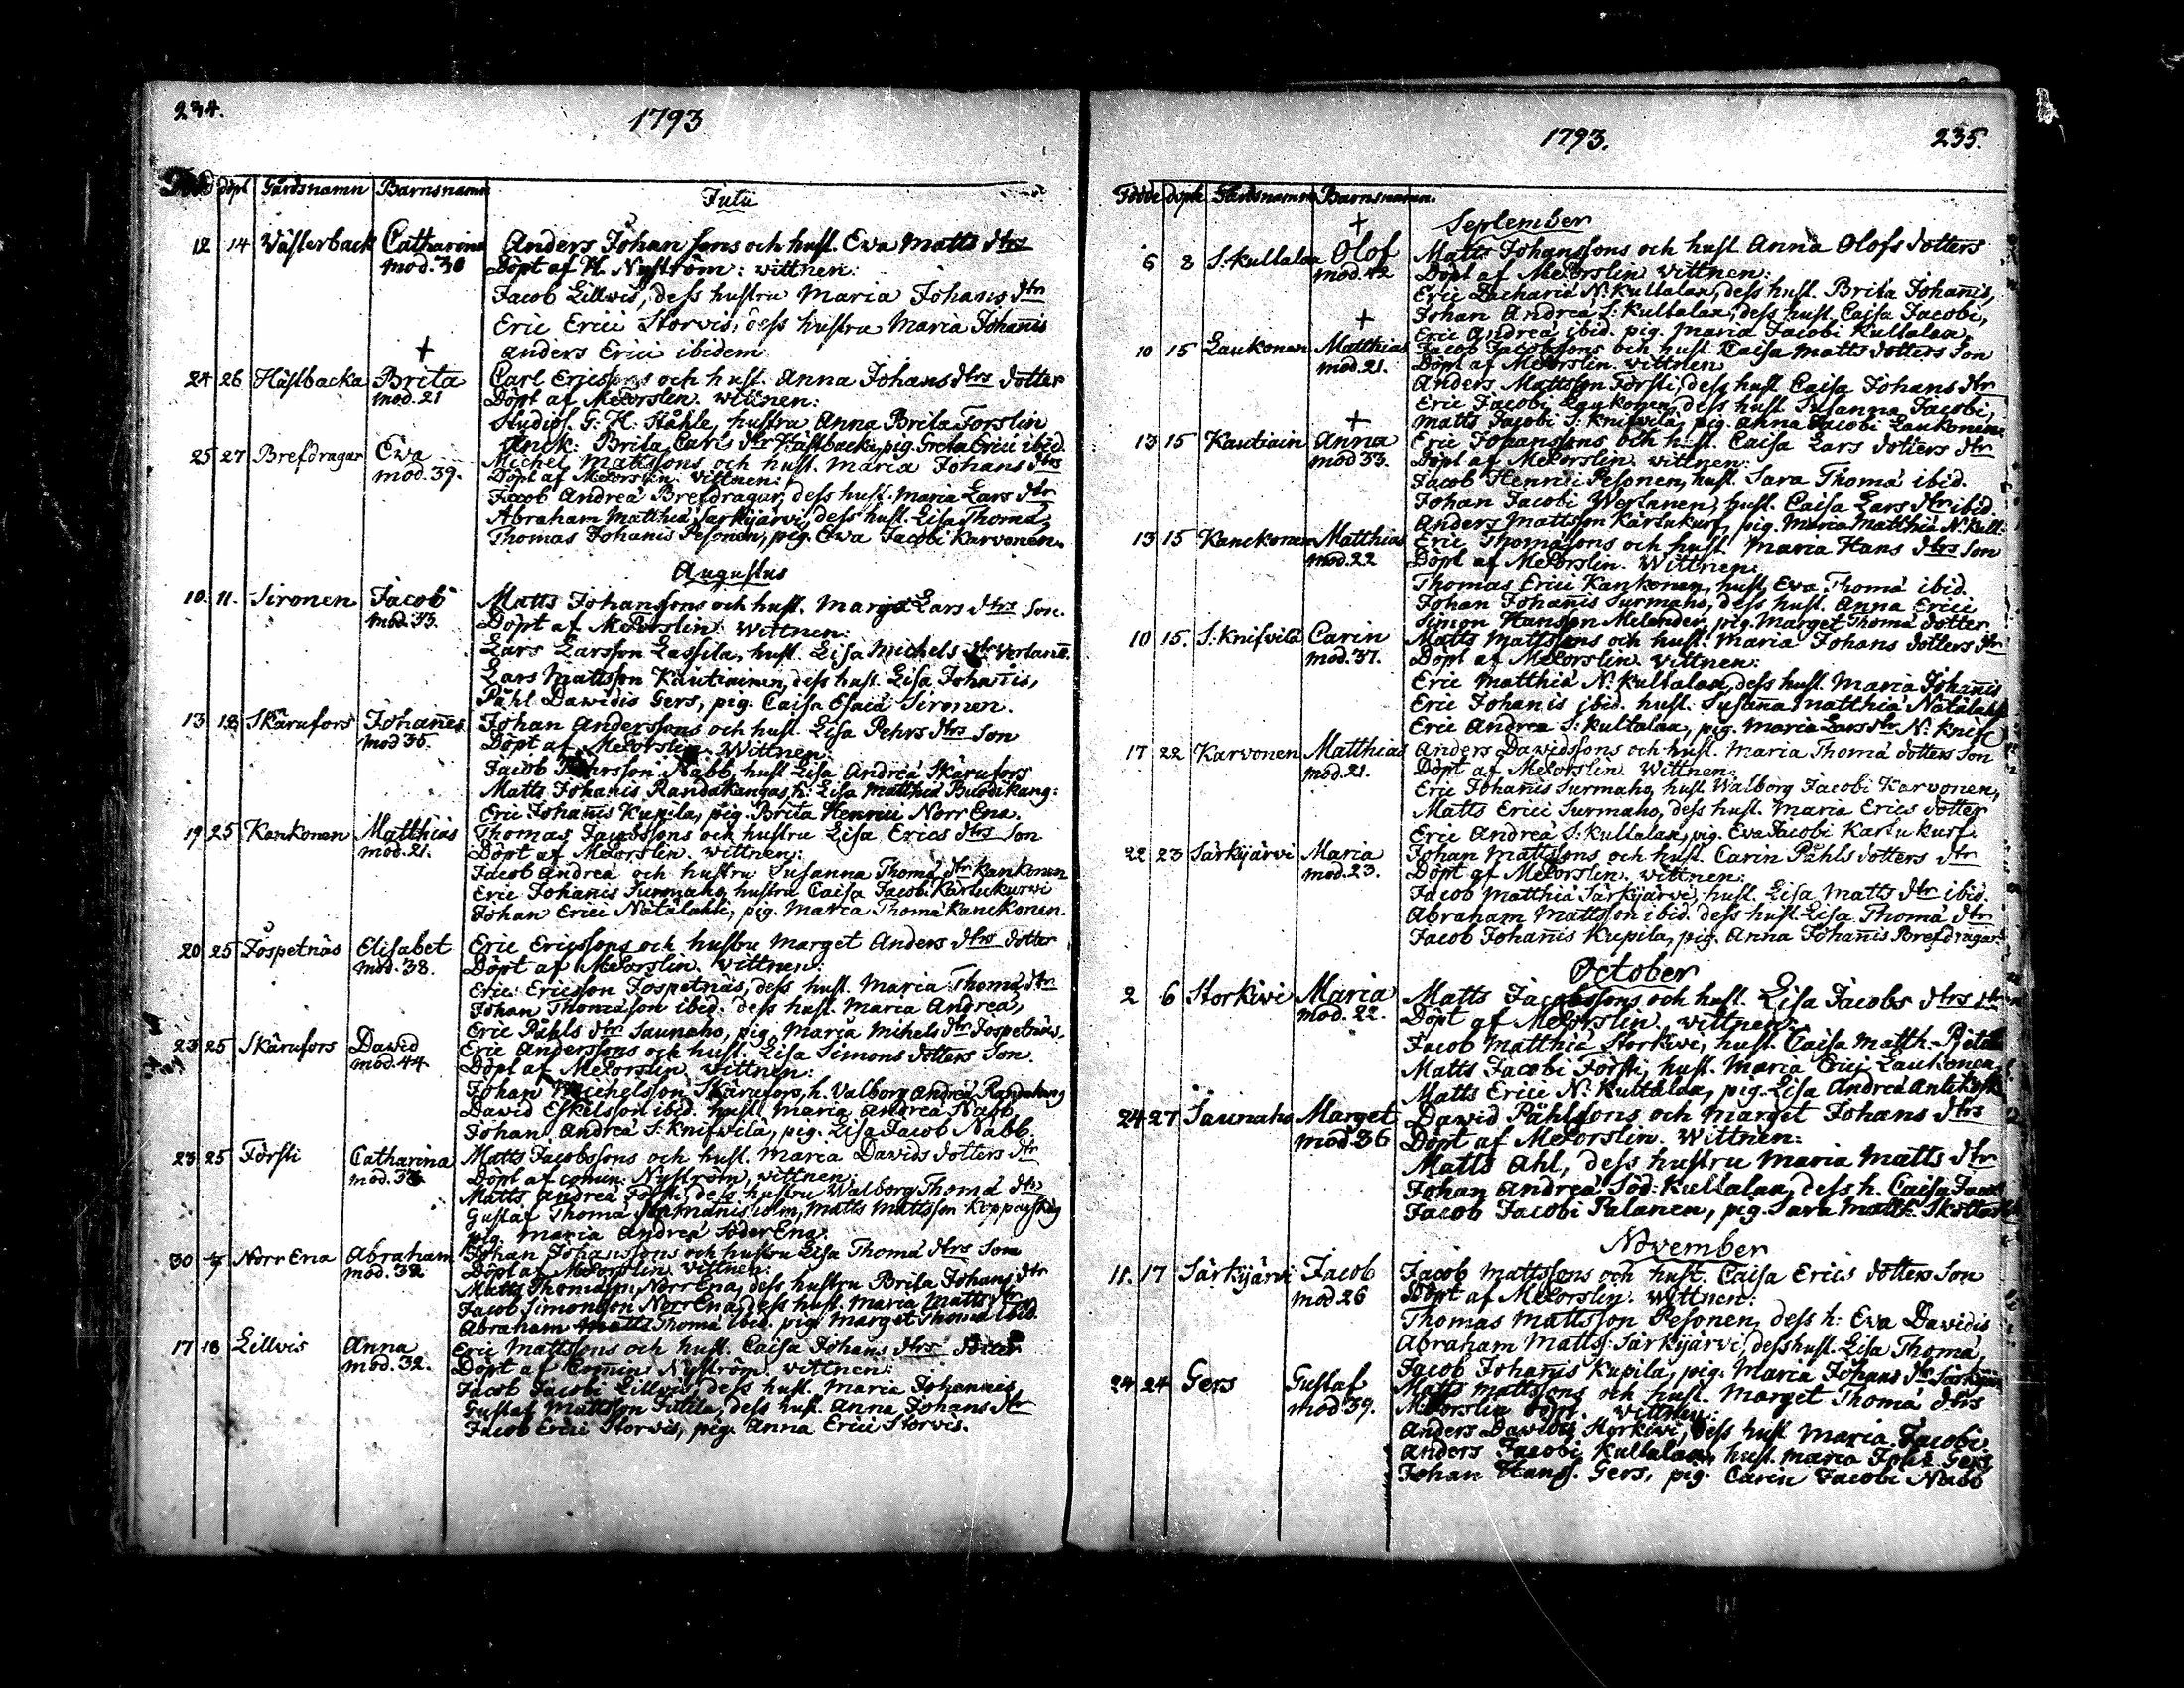 234.
1793
döpt Gårdsnamn Barnsnamn
Julii
12 14 Wästerback Catharina Anders Johansons och hust. Eva Matts dtrs
mod. 30 Döpt af H. Nyström: wittnen:
Jacob Lillwis, dess hustru Maria Johans dtr
Eric Erici Storvis, dess hustru Maria Johañis
+ Anders Erici ibidem
24 26 Hästbacka Brita Carl Ericssons och hust. Anna Johans dtrs dotter
mod. 21 Döpt af MeTorslin. wittnen:
Studios. G. H. Ståhle, hustru Anna Brita Torslin
Anck: Brita Carls dtr Hästbacka, pig. Greta Erici ibid.
25 27 Brefdragar Ewa Michel Mattssons och hust. Maria Johans dtrs
mod. 39. Döpt af MeTorslin. wittnen:
Jacob Andreæ Brefdragar, dess hust. Maria Lars dtr
Abraham Matthiæ Särkijärvi, dess hust. Lisa Thomæ,
Thomas Johanis Pesonen, pig. Ewa Jacobi Karvonen.
Augustus
10. 11. Sironen Jacob Matts Johanssons och hust. Marget Lars dtrs Son.
mod. 33. Döpt af MeTorslin: Wittnen:
Lars Larsson Lassila, hust. Lisa Michels dtr Verlane.
Lars Mattsson Kautiainen, dess hust. Lisa Johañis,
Påhl Dawidis Gers, pig. Caisa Esaiæ Sironen.
13 18 Skärufors Johañes Johan Anderssons och hust. Lisa Pehrs dtrs Son
mod 35. Döpt af MeTorslin. Wittnen:
Jacob Nabb, hust Lisa Andreæ Skärufors
Matts Johanis Randakangas, h: Lisa Matthiæ Buodikang:
Eric Johañis Kupila, pig. Brita Henrici Norr Ena.
19 25 Kankonen Matthias Thomas Jacobssons och hustru Lisa Erics dtrs Son
mod. 21. Döpt af MeTorslin. wittnen:
Jacob Andreæ och hustru Susanna Thomæ dtr Kankonen
Eric Johanis Surmaho, hustru Caisa Jacobi Kärtukurvi
Johan Erici Nätälahti, pig. Maria Thomæ Kanckonen.
20 25 Jospetnäs Elisabet Eric Ericssons och hustru Marget Anders dtrs dotter
mod. 38. Döpt af MeTorslin. wittnen:
Eric Ericsson Jospetnäs, dess hust. Maria Thomæ dtr
Johan Thomæson ibid. dess hust. Maria Andreæ,
Eric Påhls dtr Saunaho, pig. Maria Mihels dtr Jospetnäs.
23 25 Skärufors Dawid Eric Anderssons och hust. Lisa Simons dotters Son.
mod. 44 Döpt af MeTorslin. wittnen:
Johan Michelsson Skärufors, h. Valborg Andreæ Randakang
Dawid Eskelsson ibid. hust. Maria Andreæ Nabb,
Johan Andreæ S: Knifwilä, pig. Lisa Jacob Nabb.
23 25 Försti Catharina Matts Jacobssons och hust. Maria Dawids dotters dtr
mod. Döpt af comin: Nyström, wittnen:
Matts Andreæ Försti, dess hustru Walborg Thomæ dtr
Gustaf Thomæ, Matts Mattsson Kopparskog
pig. Maria Andreæ Söder Ena.
30 Norr Ena Abraham Johan Johanssons och hustru Lisa Thomæ dtrs Son
mod. 32. Döpt af MeTorslin. wittnen:
Matts Thomæson Norr Ena, dess hustru Brita Johans dtr
Jacob Simonsson Norr Ena, dess hust. Maria Matts dtr
Abraham Thomæ ibid. pig. Marget Thomæ ibid.
17 18 Lillwis Anna Eric Mattssons och hust. Caisa Johans dtrs dotter
mod. 32. Döpt af Comin: Nyström. wittnen:
Jacob Jacobi Lillwis, dess hust. Maria Johannis,
Gustaf Mattsson Jutila, dess hust. Anna Johans dtr
Jacob Erici Storvis, pig. Anna Erici Storvis.
1793. 235.
Födde döpte Gårdsnamn Barnsnamn.
+ September
6 8 S. Kultalaa Olof Matts Johanssons och hust Anna Olofs dotters
mod. 42 Döpt af MeTorslin wittnen:
Eric Zachariæ N: Kultalaa, dess hust. Brita Johañis,
+ Johan Andreæ S: Kultalaa, dess hust. Caisa Jacobi,
Eric Andreæ ibid. pig. Maria Jacobi Kultalaa,
10 15 Laukonen Matthias Jacob Jacobssons och hust. Caisa Matts dotters Son
mod. 21. Döpt af MeTorslin. wittnen
Anders Mattsson Försti, dess hust Caisa Johans dtr
Eric Jacobi Laukonen, dess hust Susanna Jacobi,
+ Matts Jacobi S: Knifvilä, pig. Anna Jacobi Laukonen.
13 15 Kautiain Anna Eric Johanssons och hust. Caisa Lars dotters dtr
mod 33. Döpt af MeTorslin. wittnen:
Jacob Henrici Pesonen, hust. Sara Thomæ ibid.
Johan Jacobi Werlanen, hust. Caisa Lars dtr ibid.
Anders Mattsson Kärtukurf, pig. Maria Matthiæ N: Kult:
13 15 Kanckonen Matthias Eric Thomæsons och hust. Maria Hans dtrs Son
mod. 22 Döpt af MeTorslin. Wittnen:
Thomas Erici Kankonen, hust. Eva Thomæ ibid.
Johan Johañis Surmaho, dess hust. Anna Erici
Simon Hansson Melender, pig. Marget Thomæ dotter
10 15. S: Knifvilä Carin Matts Mattssons och hust. Maria Johans dotters dtr
mod. 37. Döpt af MeTorslin. wittnen:
Eric Matthiæ N: Kultalaa, dess hust. Maria Johañis
Eric Johanis ibid. hust. Susaña Matthiæ Nätälaht
Eric Andreæ S: Kultalaa, pig. Maria Lars dtr N: Knif
17 22 Karvonen Matthias Anders Dawidssons och hust. Maria Thomæ dotters Son
mod. 21. Döpt af MeTorslin. Wittnen:
Eric Johañis Surmaho, hust Walborg Jacobi Karvonen,
Matts Erici Surmaho, dess hust. Maria Erics dotter
Eric Andreæ S: Kultalaa, pig. Eva Jacobi Kartukurf.
22 23 Särkijärvi Maria Johan Mattssons och hust. Carin Påhls dotters dtr
mod. 23. Döpt af MeTorslin. wittnen:
Jacob Matthiæ Särkijärvi, hust. Lisa Matts dtr ibid.
Abraham Mattsson ibid. dess hust. Lisa Thomæ dtr
Jacob Johañis Kupila, pig. Anna Johañis Brefdragar.
October
2 6 Storkivi Maria Matts Jacobssons och hust. Lisa Jacobs dtrs dtr
mod. 22. Döpt af MeTorslin. wittnen:
Jacob Matthiæ Storkivi, hust. Caisa Matth.
Matts Jacobi Försti, hust. Maria Erici Laukonen
Matts Erici N: Kultalaa, pig. Lisa Andreæ
24 27 Saunaho Marget Dawid Påhlssons och Marget Johans dtrs
mod 36 Döpt af MeTorslin. Wittnen:
Matts Ahl, dess hustru Maria Matts dtr
Johan Andreæ Söd: Kultalaa, dess h. Caisa
Jacob Jacobi Palanen, pig. Sara Matth.
November
11. 17 Särkijärvi Jacob Jacob Mattssons och hust. Caisa Erics dotters Son
mod 26 Döpt af MeTorslin. wittnen:
Thomas Mattsson Pesonen, dess h: Eva Dawidis
Abraham Matts: Särkijärvi, dess hust. Lisa Thomæ,
Jacob Johañis Kupila, pig. Maria Johans dtr
24 24 Gers Gustaf Matts Mattssons och hust. Marget Thomæ dtrs
mod 39. MeTorslin wittnen:
Anders Dawidis Storkivi, dess hust Maria Jacobi
Anders Jacobi Kultalaa, hust. Maria Gers
Johan Hanss. Gers, pig. Carin Jacobi Nabb